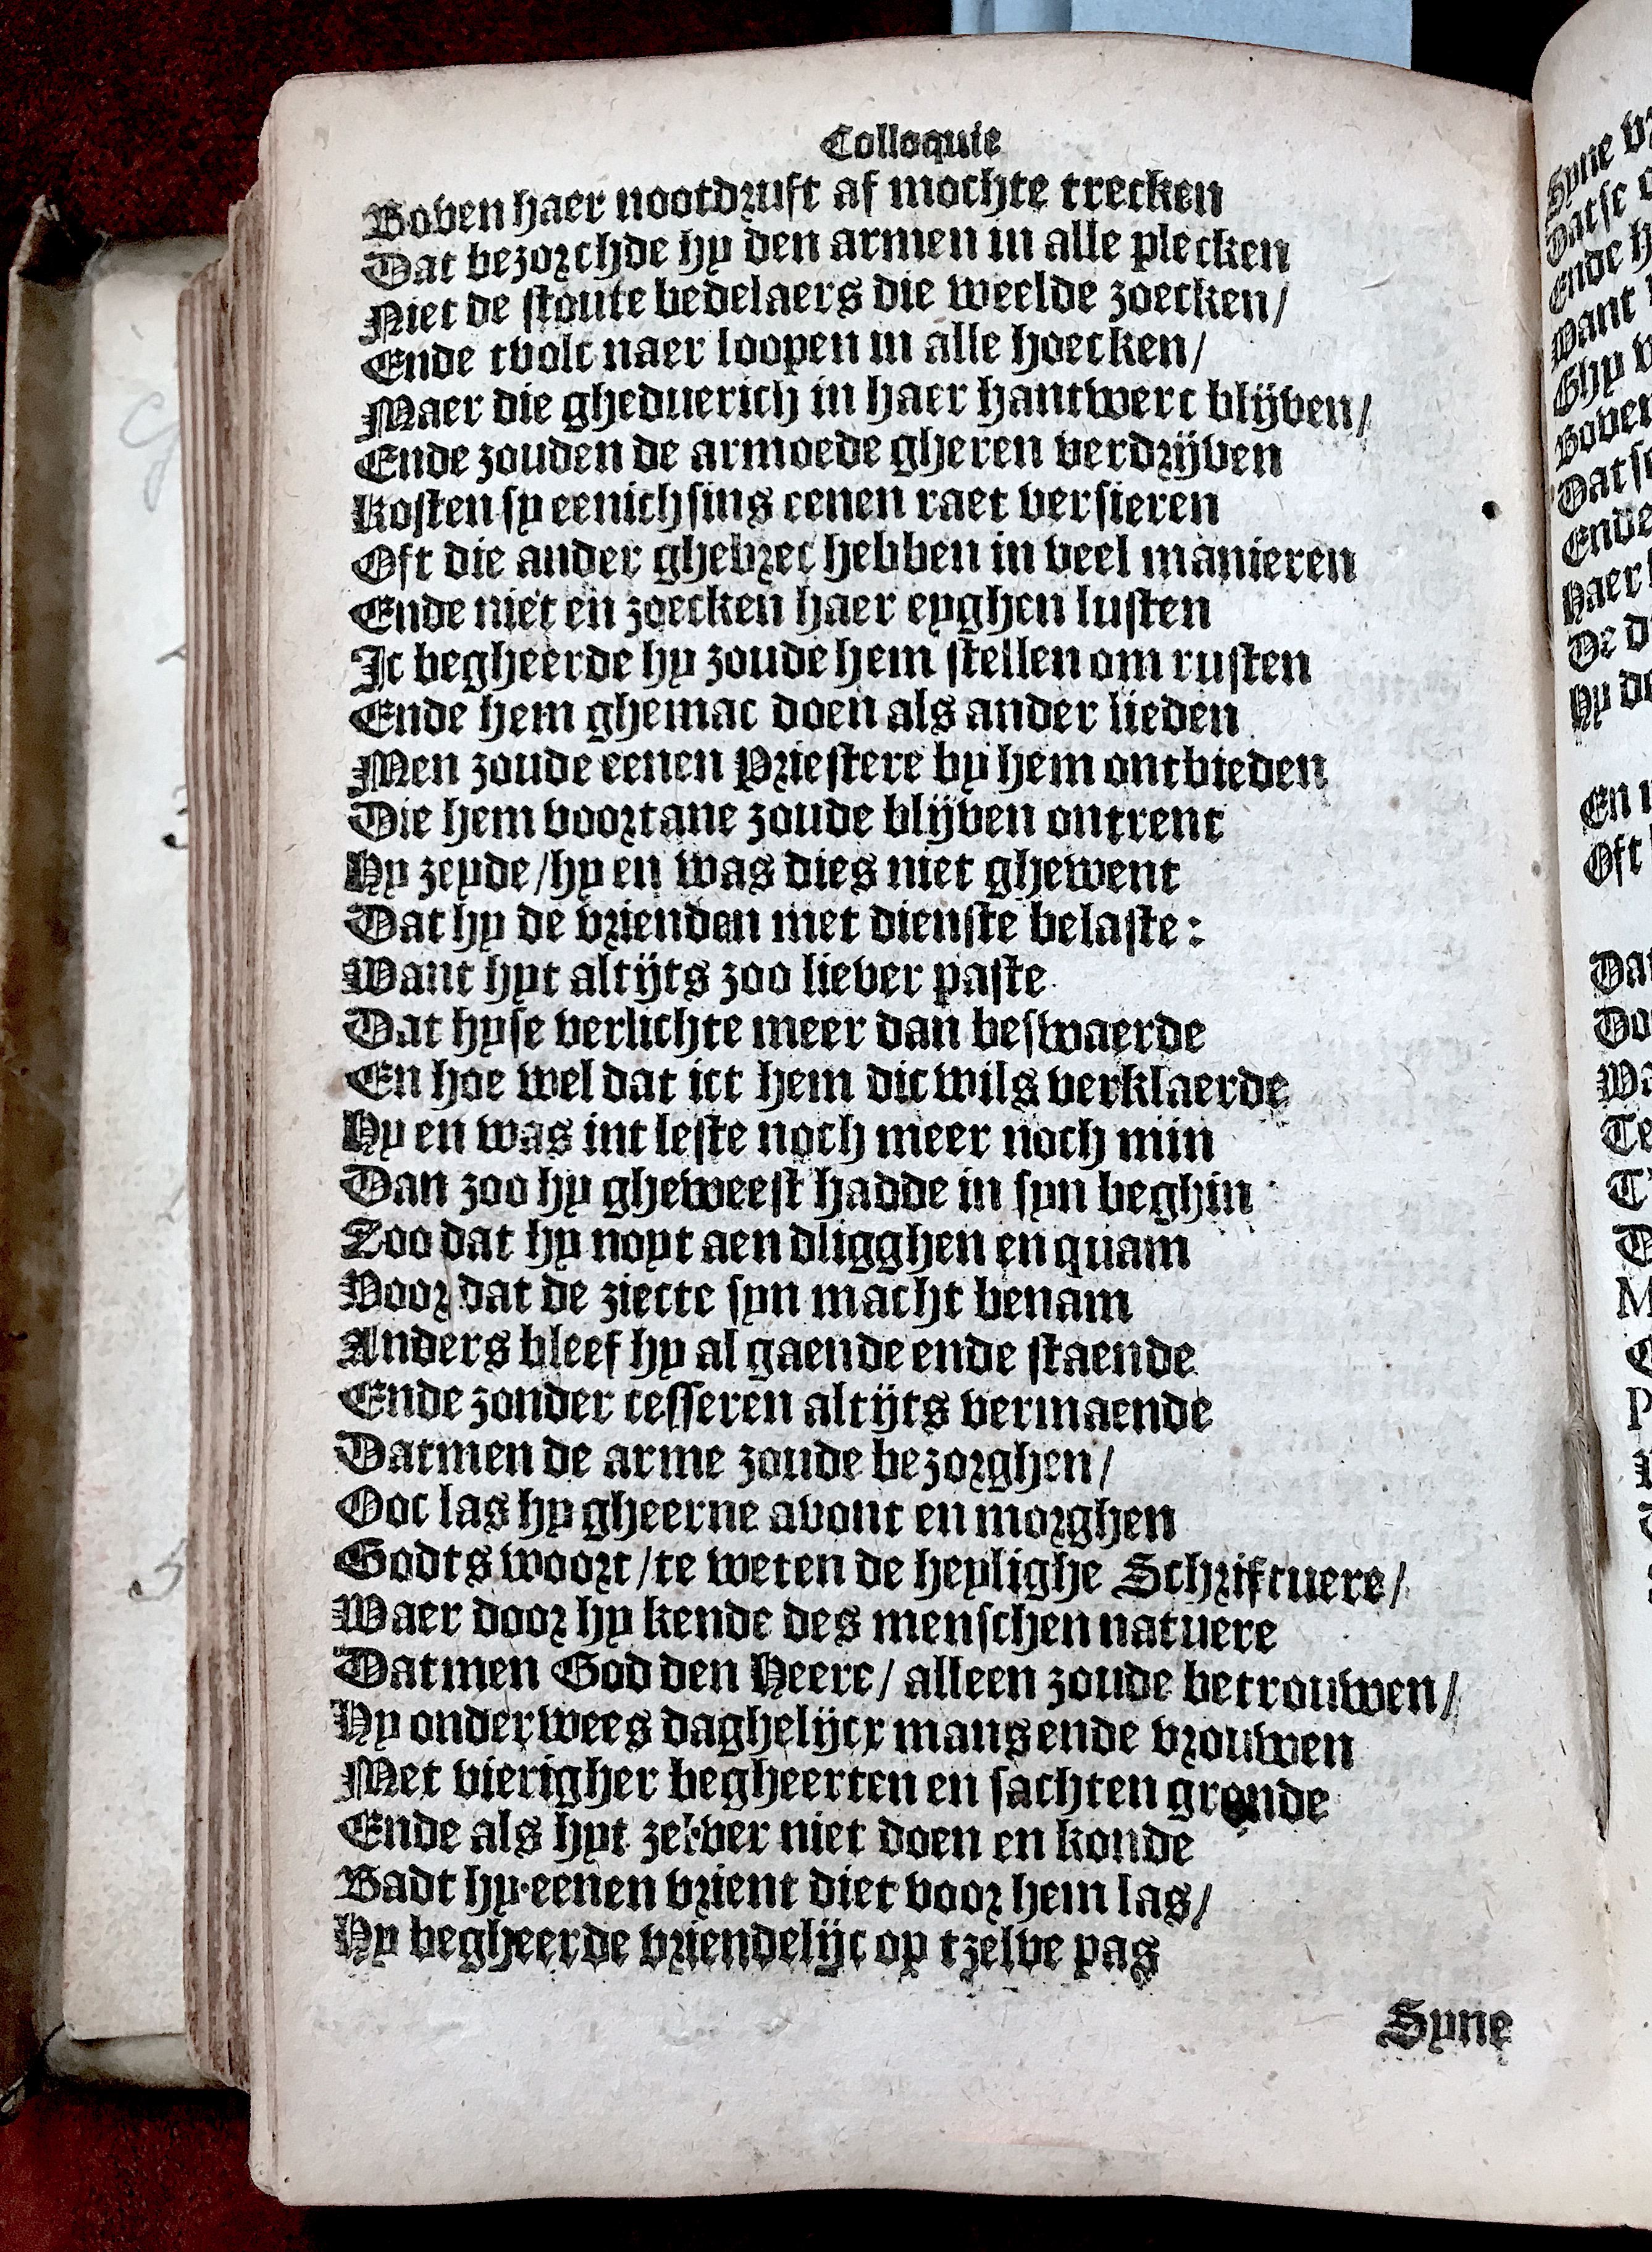 Colloquie
Boven haer nootdruft af mochte trecken
Dat bezorchde hy den armen in alle plecken
Niet de stoute bedelaers die weelde zoecken/
Ende tvolc naer loopen in alle hoecken/
Maer die gheduerich in haer hantwerc blijven/
Ende zouden de armoede gheren verdrijven
Kosten sy eenichsins eenen raet versieren
Oft die ander ghebrec hebben in veel manieren
Ende niet en zoecken haer eyghen lusten
Ic begheerde hy zoude hem stellen om rusten
Ende hem ghemac doen als ander lieden
Men zoude eenen Priestere by hem ontbieden
Die hem voortane zoude blijven ontrent
Hy zeyde/hy en was dies niet ghewent
Dat hy de vrienden met dienste belaste:
Want hyt altijts zoo liever paste
Dat hyse verlichte meer dan beswaerde
En hoe wel dat ict hem dicwils verklaerde
Hy en was int leste noch meer noch min
Dan zoo hy gheweest hadde in syn beghin
Zoo dat hy noyt aen dligghen en quam
Voor dat de ziecte syn macht benam
Anders bleef hy al gaende ende staende
Ende zonder cesseren altijts vermaende
Datmen de arme zoude bezorghen/
Ooc las hy gheerne avont en morghen
Godts woort/te weten de heylighe Schriftuere/
Waer door hy kende des menschen natuere
Datmen God den Heere/ alleen zoude betrouwen/
Hy onderwees daghelijcx mans ende vrouwen
Met vierigher begheerten en sachten gronde
Ende als hyt zelver niet doen en konde
Badt hy eenen vrient diet voor hem las/
Hy begheerde vriendelijc op tzelve pas
Syne
Syne
Datse
Ende
Want
Ghy
Boven
Ende
Haer
De
Hy
En
Oft